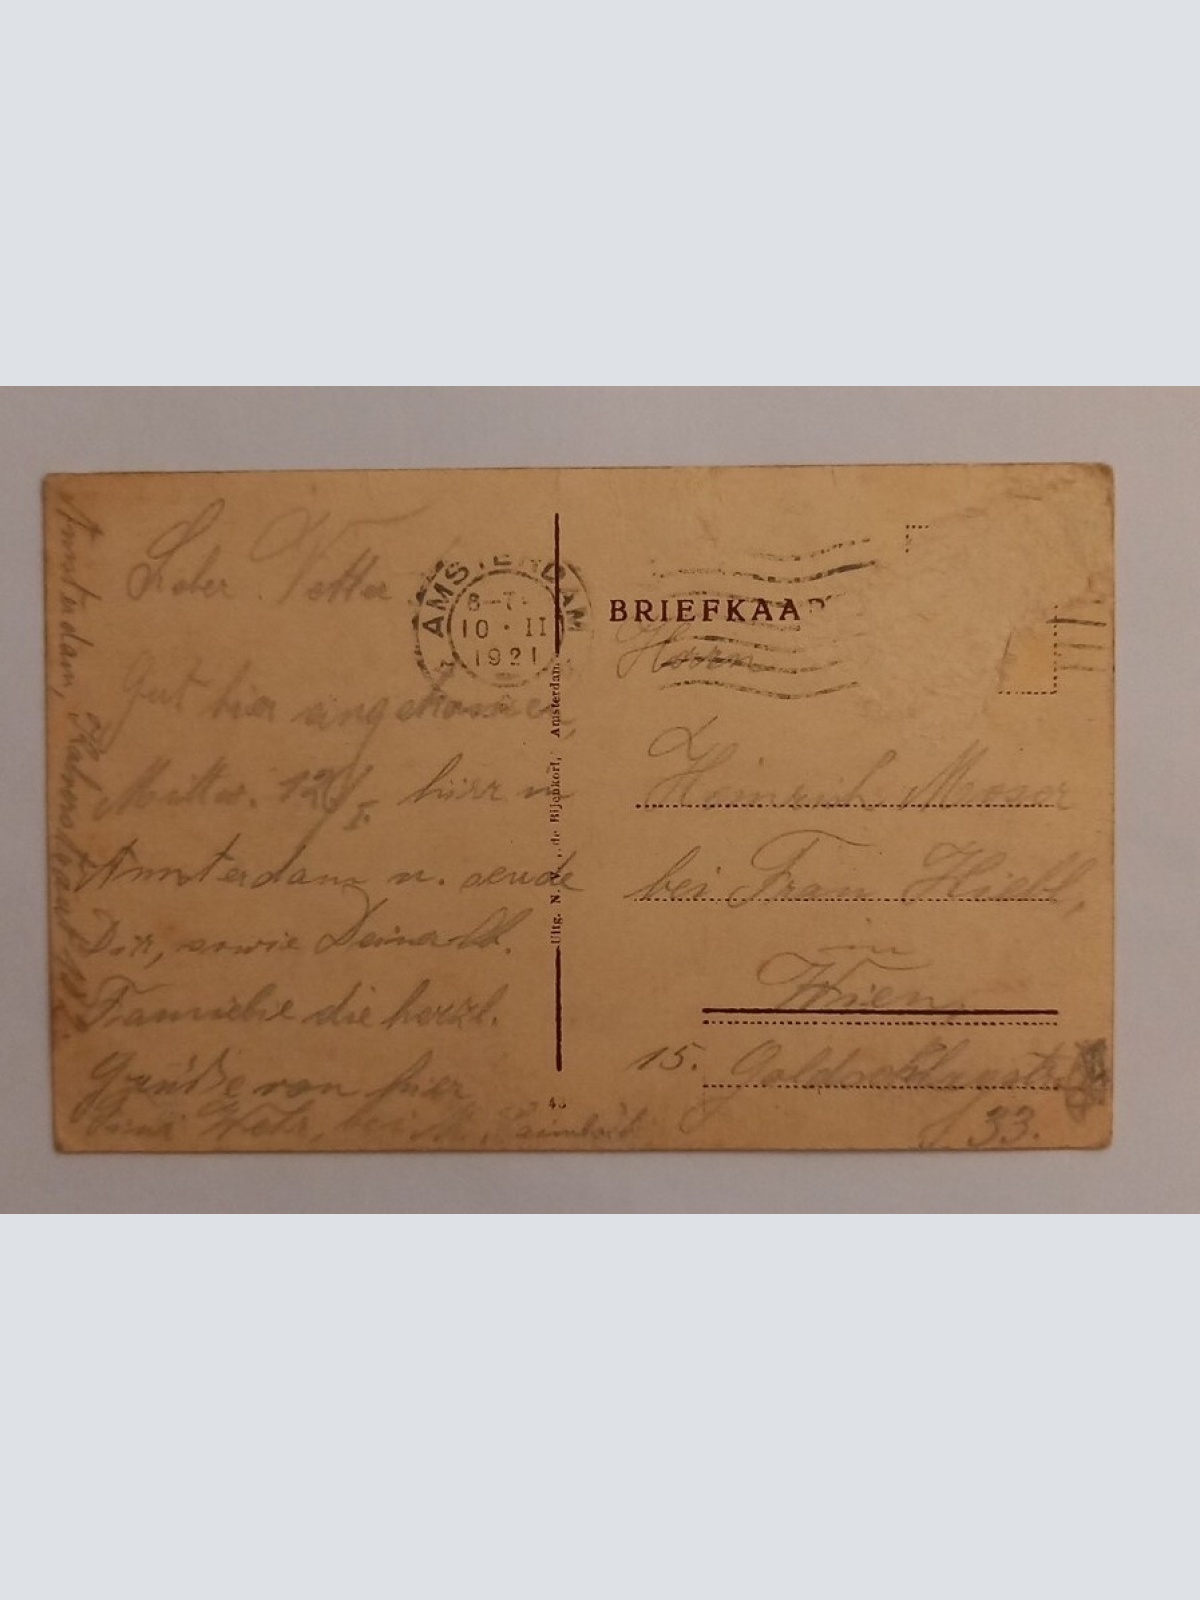 Lieber Vetter
Gut hier eingekommen
Mittw. 12/I. hier in
Amsterdam u. sende
Dir, sowie Deiner lb.
Familie die herzl.
Grüße von hier
bei
Amsterdam,
AMSTERDAM
8-7
10 · II
1921
Uitg. N. V. de Bijenkorf, Amsterdam
48
BRIEFKAART
Herrn
Heinrich Messer
bei Frau Hiebl,
in
Wien,
15. Goldschlagstr.
33.